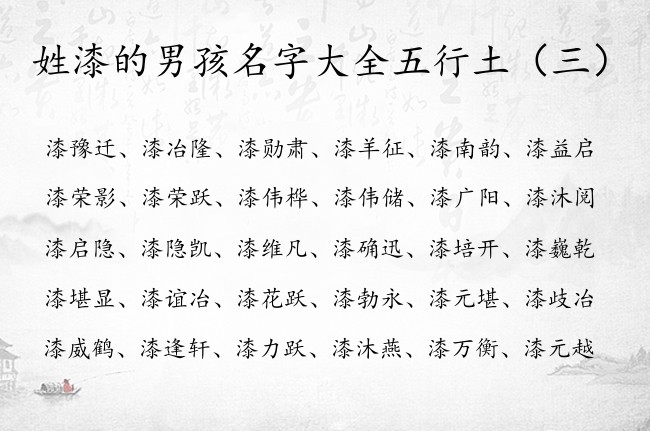 姓漆的男孩名字大全五行土（三）
漆豫迁、漆冶隆、漆勋肃、漆羊征、漆南韵、漆益启
漆荣影、漆荣跃、漆伟桦、漆伟储、漆广阳、漆沐阅
漆启隐、漆隐凯、漆维凡、漆确迅、漆培开、漆巍乾
漆堪显、漆谊冶、漆花跃、漆勃永、漆元堪、漆歧冶
漆威鹤、漆逢轩、漆力跃、漆沐燕、漆万衡、漆元越